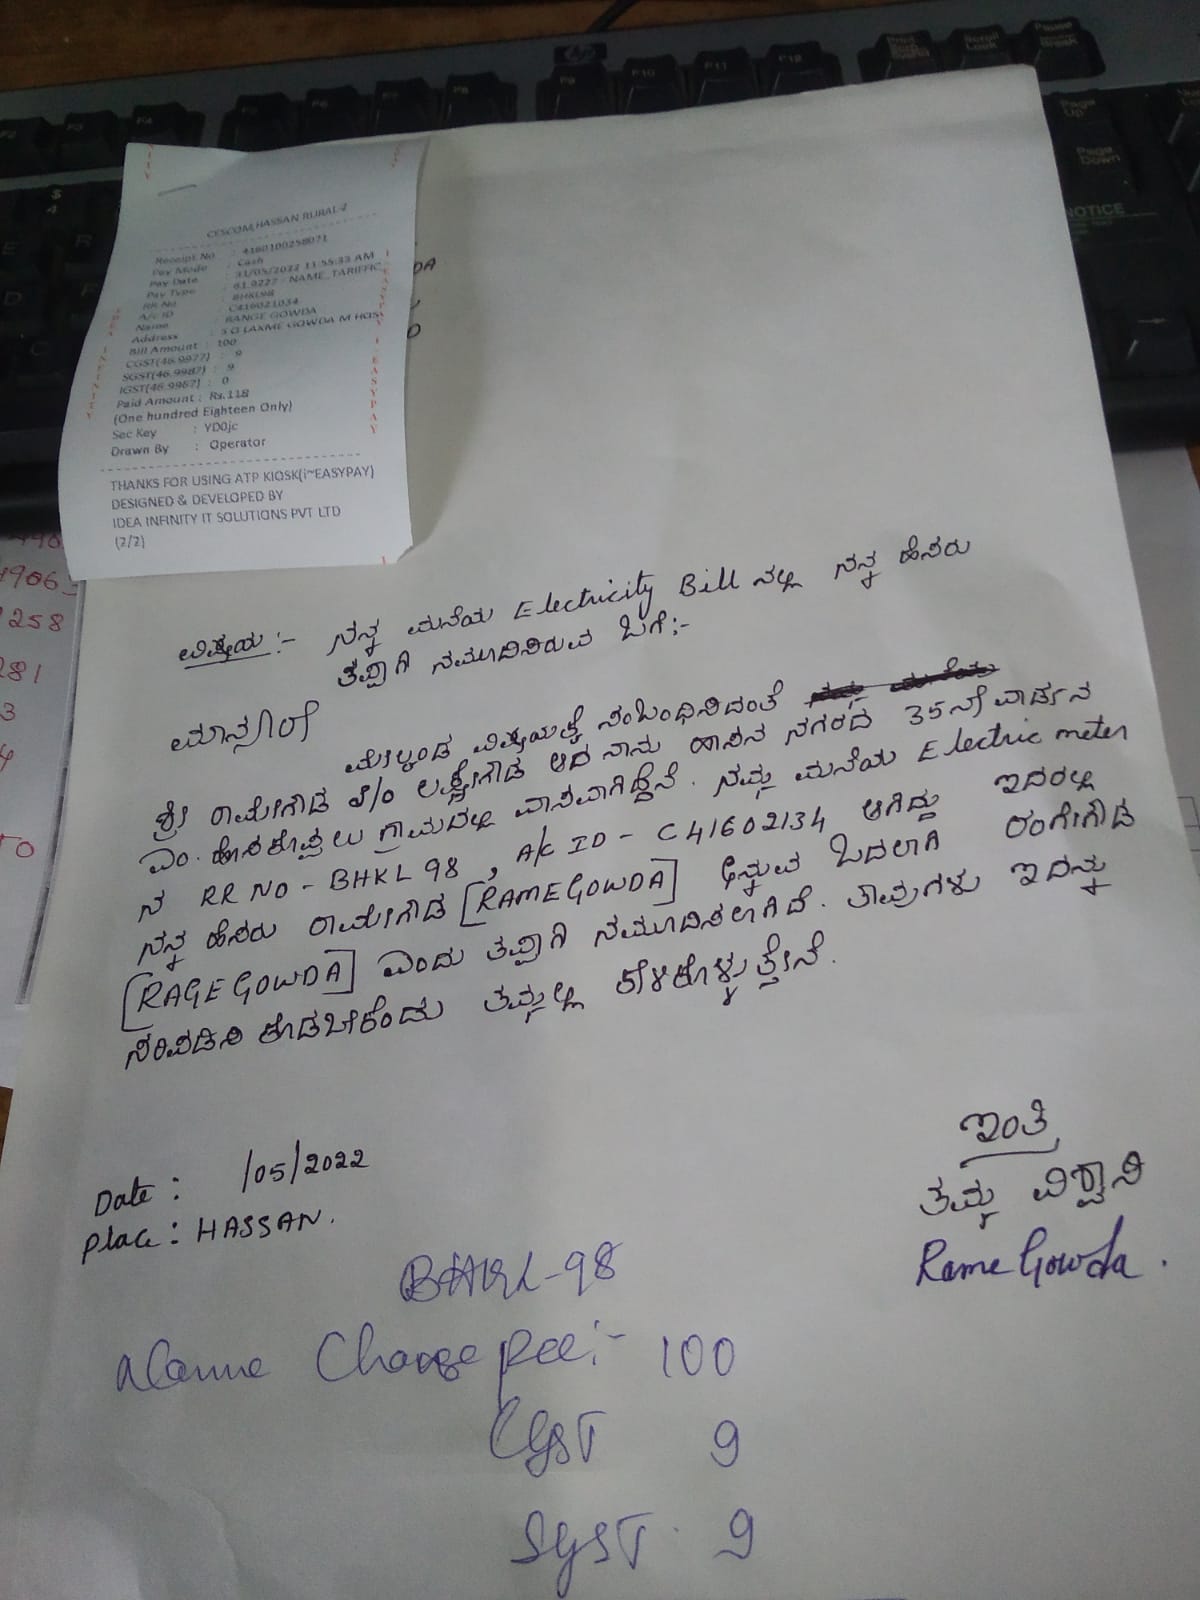 CESCOM,HASSAN RURAL-2
Receipt No : 4160100258071
Pay Mode : Cash
Pay Date : 31/05/2022 11:55:33 AM
Pay Type : 61.9227 - NAME_TARIFFIC
RR No : BHKL98
A/C ID : C416021034
Name : RANGE GOWDA
Address : S O LAXME GOWDA M HOS
Bill Amount : 100
CGST(46.9977) : 9
SGST(46.9987) : 9
IGST(46.9967) : 0
Paid Amount : Rs.118
(One hundred Eighteen Only)
Sec Key : YD0jc
Drawn By : Operator
THANKS FOR USING ATP KIOSK(i~EASYPAY)
DESIGNED & DEVELOPED BY
IDEA INFINITY IT SOLUTIONS PVT LTD
(2/2)
ವಿಷಯ :- ನನ್ನ ಮನೆಯ Electricity Bill ನಲ್ಲಿ ನನ್ನ ಹೆಸರು
ತಪ್ಪಾಗಿ ನಮೂದಿಸಿರುವ ಬಗೆ:-
ಮಾನ್ಯರೇ
ಮೇಲ್ಕಂಡ ವಿಷಯಕ್ಕೆ ಸಂಬಂಧಿಸಿದಂತೆ
ಶ್ರೀ ರಾಮೇಗೌಡ S/O ಲಕ್ಷ್ಮೇಗೌಡ ಆದ ನಾನು ಹಾಸನ ನಗರದ 35ನೇ ವಾರ್ಡನ
ಎಂ. ಹೊಸಕೊಪ್ಪಲು ಗ್ರಾಮದಲ್ಲಿ ವಾಸವಾಗಿದ್ದೇನೆ. ನಮ್ಮ ಮನೆಯ Electric meter
ನ RR NO - BHKL 98, A/c ID - C41602134 ಆಗಿದ್ದು ಇದರಲ್ಲಿ
ನನ್ನ ಹೆಸರು ರಾಮೇಗೌಡ [RAME GOWDA] ಎನ್ನುವ ಬದಲಾಗಿ ರಂಗೇಗೌಡ
[RAGE GOWDA] ಎಂದು ತಪ್ಪಾಗಿ ನಮೂದಿಸಲಾಗಿದೆ. ತಾವುಗಳು ಇದನ್ನು
ಸರಿಪಡಿಸಿ ಕೊಡಬೇಕೆಂದು ತಮ್ಮಲ್ಲಿ ಕೇಳಿಕೊಳ್ಳುತ್ತೇನೆ.
ಇಂತಿ
ತಮ್ಮ ವಿಶ್ವಾಸಿ
Rame Gowda.
Date : /05/2022
Place : HASSAN.
BHKL-98
Name Change fee:- 100
CGST 9
SGST 9